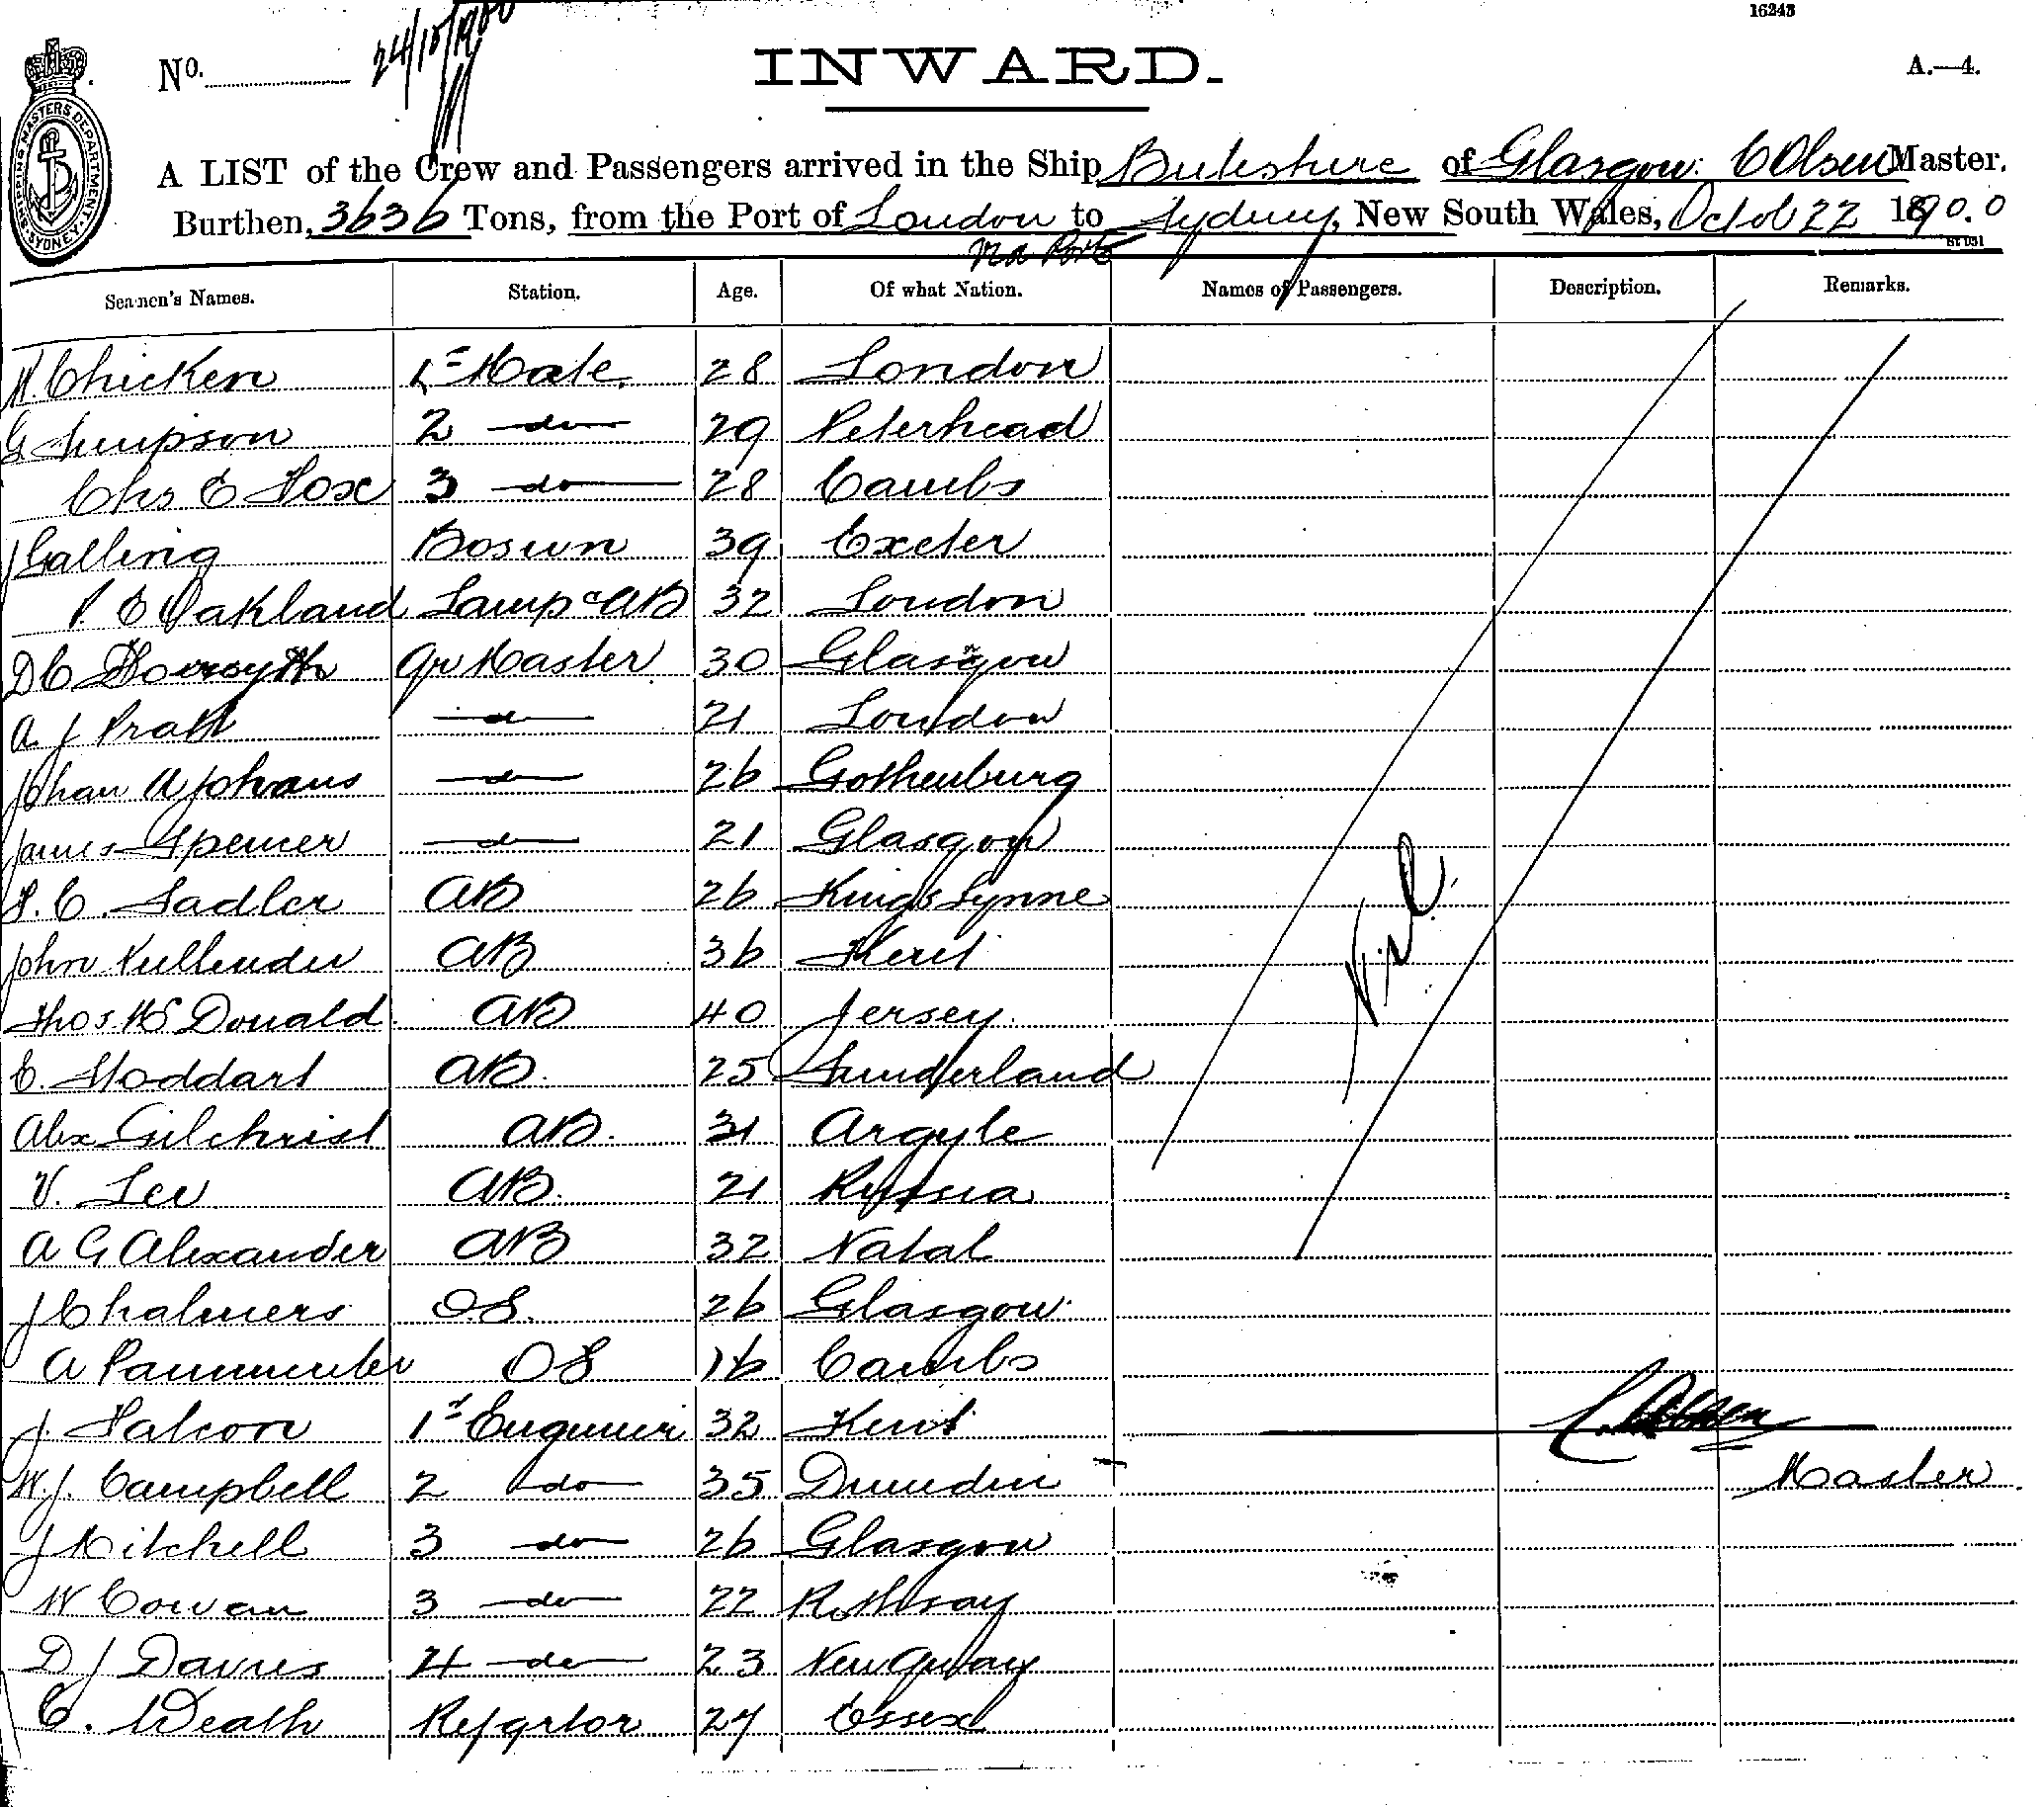 16243
No. 24/10/1900
INWARD.
A.—4.
SHIPPING MASTERS DEPARTMENT SYDNEY
A LIST of the Crew and Passengers arrived in the Ship Buteshire of Glasgow: C Olsen Master.
Burthen, 3636 Tons, from the Port of London to Sydney, New South Wales, Octob 22 1890.0
via Ports
Seamen's Names. Station. Age. Of what Nation. Names of Passengers. Description. Remarks.
Chicken 1st Mate 28 London
G Simpson 2 do 29 Peterhead
Chs E Fox 3 do 28 Cambs
J Galling Bosun 39 Exeter
Oakland Lamps AB 32 London
D C Forsyth Qr Master 30 Glasgow
A J Pratt do 21 London
Johan A Johans do 26 Gothenburg
James Spencer do 21 Glasgow
F. C. Sadler AB 26 Kings Lynne
John AB 36 Kent
Thos McDonald AB 40 Jersey
C. Stoddart AB. 25 Sunderland
Alex Gilchrist AB. 31 Argyle
V. Lee AB. 21 Russia
A G Alexander AB 32 Natal
J Chalmers O.S. 26 Glasgow
A Pammenter OS 16 Cambs
J. Falcon 1st Engineer 32 Kent
W. J. Campbell 2 do 35 Dunedin
J Mitchell 3 do 26 Glasgow
W Cowan 3 do 22 Rothsay
D J Davies 4 do 23 New Quay
C. Death Refgrtor 27 Essex
Nil
C. Olsen
Master